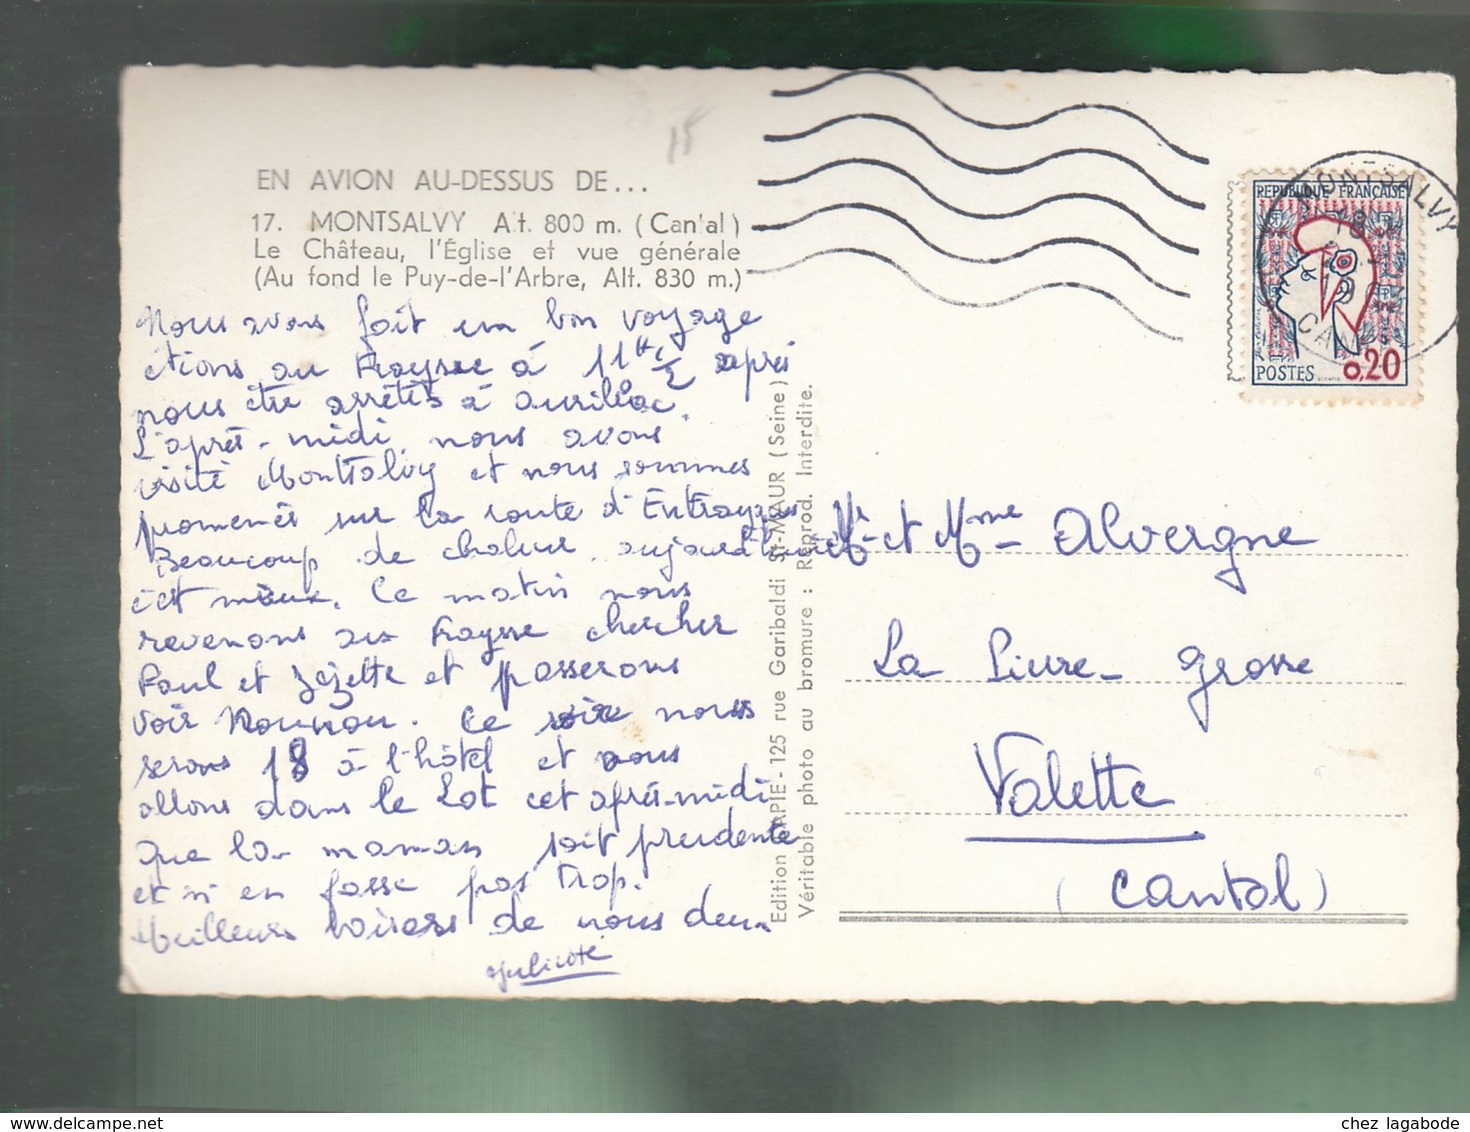 15
EN AVION AU-DESSUS DE...
17. MONTSALVY Alt. 800 m. (Cantal)
Le Château, l'Église et vue générale
(Au fond le Puy-de-l'Arbre, Alt. 830 m.)
Nous avons fait un bon voyage
étions au Fraysse à 11h 1/2 après
nous être arrêtés à Aurillac.
L'après-midi nous avons
visité Montsalvy et nous sommes
promenés sur la route d'Entraygues
Beaucoup de chaleur. aujourd'hui
c'est mieux. Ce matin nous
revenons au Fraysse chercher
Paul et Zézette et passerons
voir Nounou. Ce soir nous
serons 18 à l'hôtel et nous
allons dans le Lot cet après-midi
Que la maman soit prudente
et n'en fasse pas trop.
Meilleurs baisers de nous deux
Edition LAPIE - 125 rue Garibaldi St-MAUR (Seine)
Véritable photo au bromure : Reprod. Interdite.
REPUBLIQUE FRANÇAISE
POSTES 0,20
MONTSALVY
18
19
CANTAL
Mr et Mme Alvergne
La Pierre grosse
Valette
(Cantal)
chez lagabode